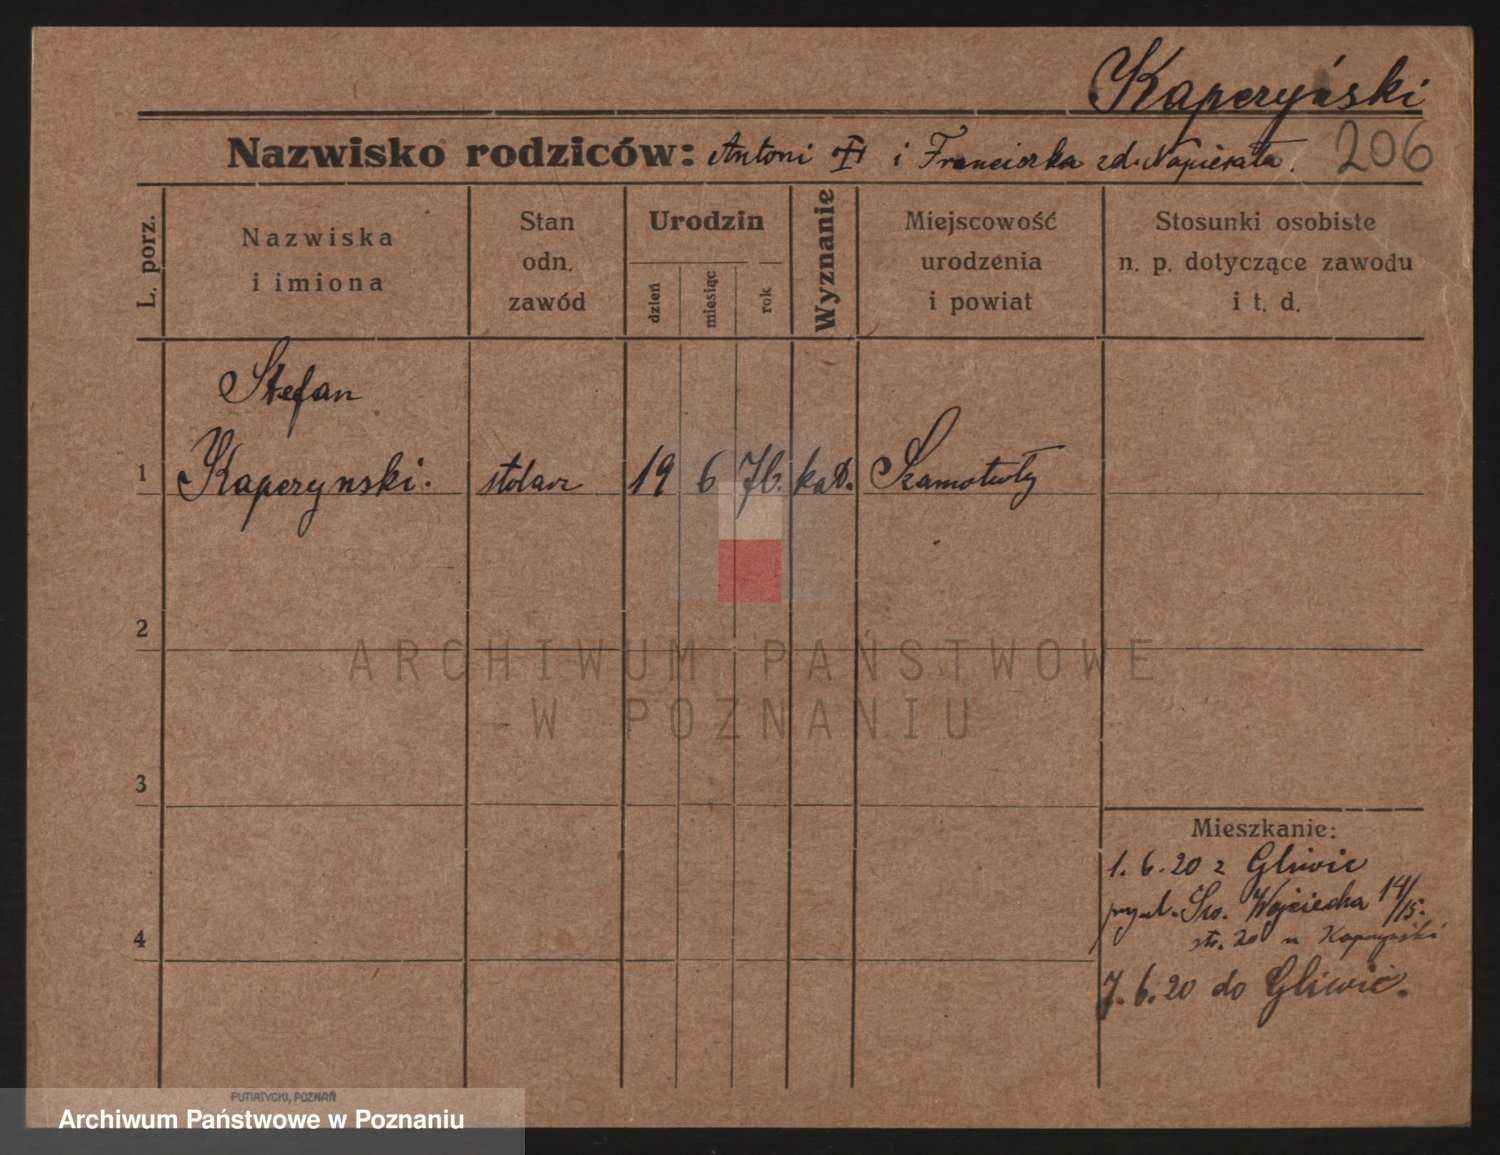 Kaperyński
206
Nazwisko rodziców: Antoni i Franciszka zd. Napierała.
L. porz.
Nazwiska
i imiona
Stan
odn.
zawód
Urodzin
dzień
miesiąc
rok
Wyznanie
Miejscowość
urodzenia
i powiat
Stosunki osobiste
n. p. dotyczące zawodu
i t. d.
Stefan
1 Kaperynski. stolarz 19 6 76. kat. Szamotuły
2
ARCHIWUM PAŃSTWOWE
W POZNANIU
3
Mieszkanie:
1. 6. 20 z Gliwic
Św. Wojciecha 14/15.
4
str. 20 u Kaperyński
7. 6. 20 do Gliwic.
PUTIATYCKI, POZNAŃ
Archiwum Państwowe w Poznaniu